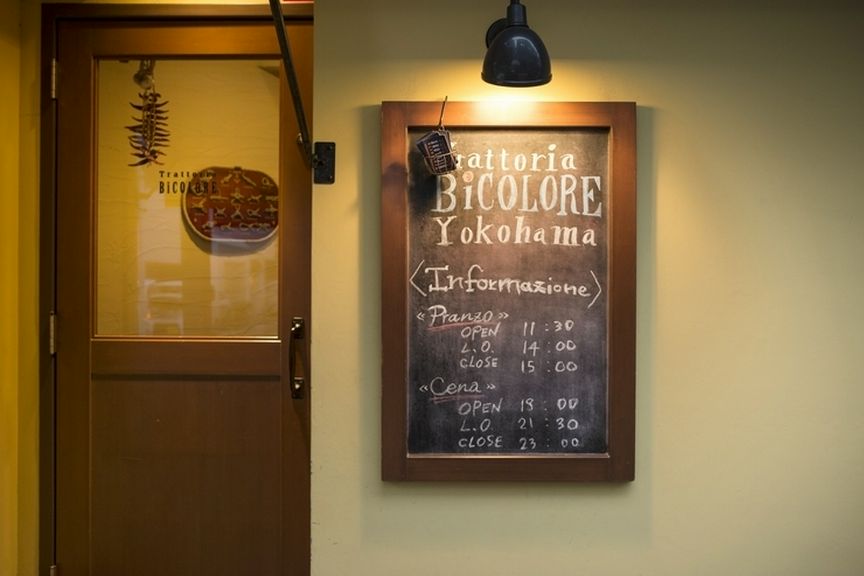 Trattoria
BiCOLORE
Trattoria
BiCOLORE
Yokohama
<Informazione>
«Pranzo»
OPEN 11:30
L.O. 14:00
CLOSE 15:00
«Cena»
OPEN 18:00
L.O. 21:30
CLOSE 23:00